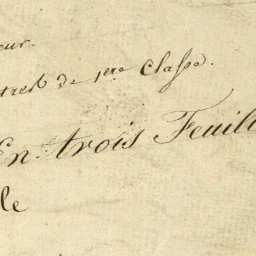 eur.
tres de 1ere Classe.
En trois Feuill
le